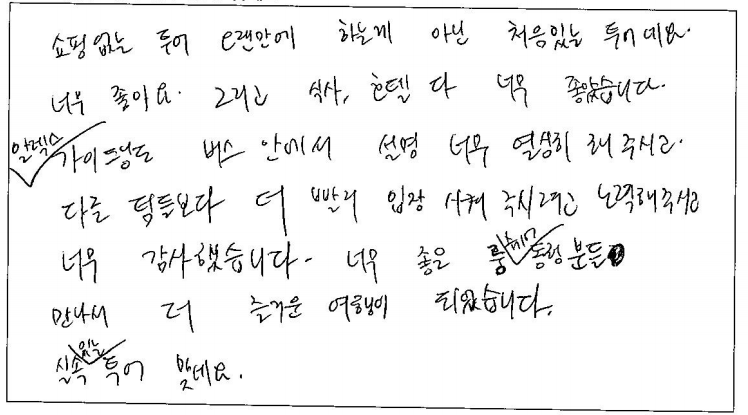 쇼핑없는 투어 오랜만에 하는게 아닌 처음있는 투어네요.
너무 좋아요. 그리고 식사, 호텔 다 너무 좋았습니다.
알렉스 가이드님도 버스 안에서 설명 너무 열심히 해 주시고.
다른 팀들보다 더 빨리 입장 시켜 주시려고 노력해주시고
너무 감사했습니다. 너무 좋은 룸 동행분들
만나서 더 즐거운 여행이 되었습니다.
실속있는 투어 맞네요.